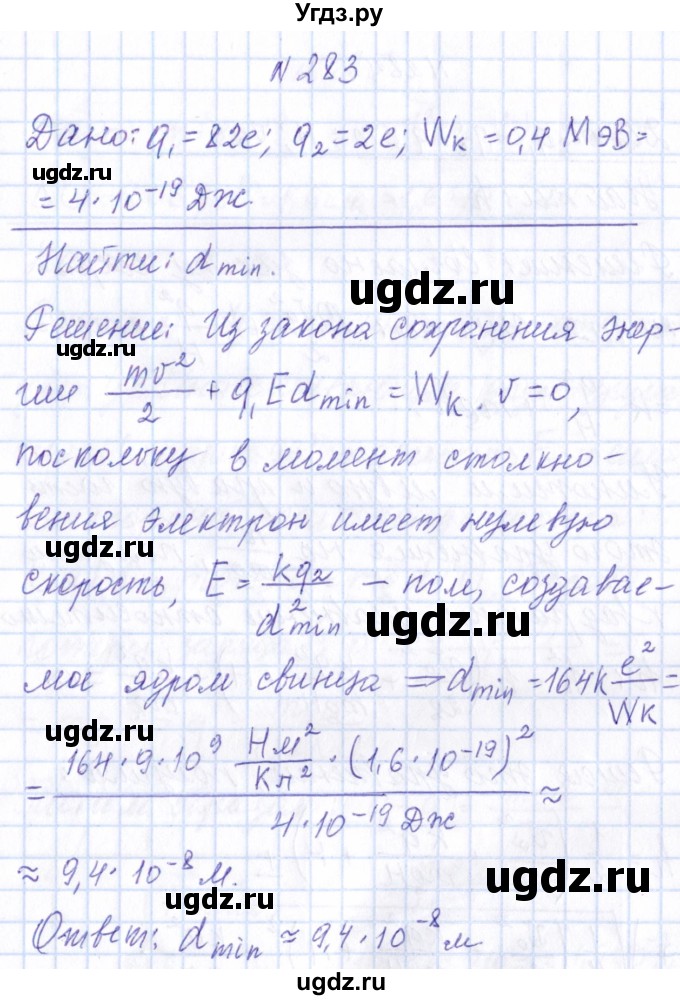 Угдз.ру
N 283
Дано: q₁ = 82e; q₂ = 2e; Wк = 0,4 МэВ =
= 4 · 10⁻¹⁹ Дж.
ugdz.ru
Найти: d min.
ugdz.ru
Решение: Из закона сохранения энер-
ugdz.ru
гии mv²/2 + q₁Ed min = Wк. v = 0,
поскольку в момент столкно-
вения электрон имеет нулевую
ugdz.ru
скорость, E = kq₂/d²min – пол, создавае-
ugdz.ru
мое ядром свинца ⇒ d min = 164k e²/Wк =
ugdz.ru
= 164 · 9 · 10⁹ Нм²/Кл² · (1,6 · 10⁻¹⁹)² / 4 · 10⁻¹⁹ Дж ≈
≈ 9,4 · 10⁻⁸ м.
ugdz.ru
ugdz.ru
Ответ: d min ≈ 9,4 · 10⁻⁸ м
ugdz.ru
ugdz.ru